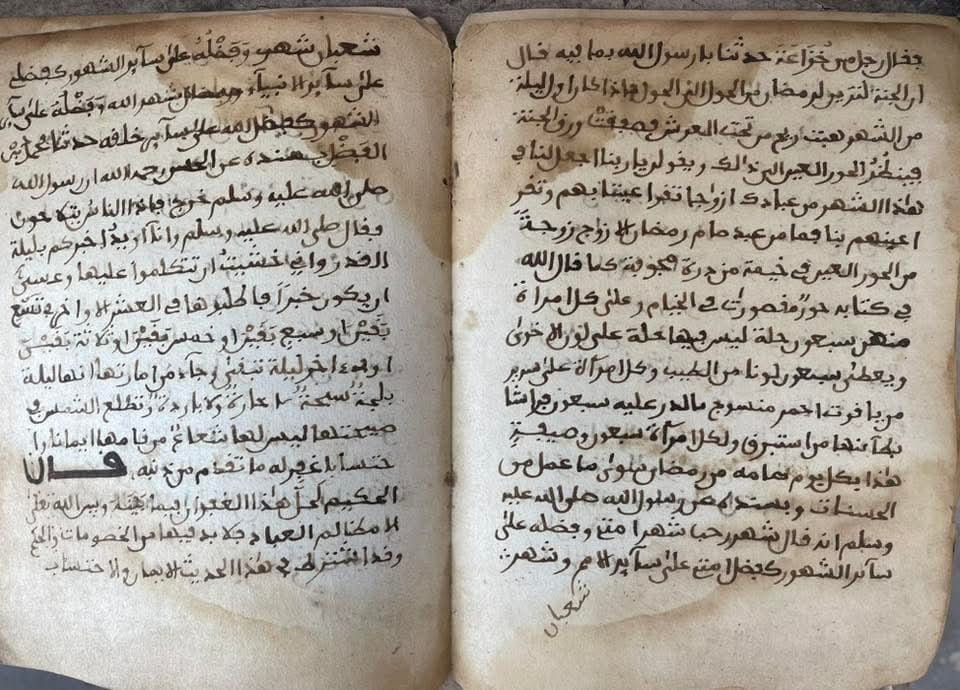 فقال رجل من خزاعة حدثنا يا رسول الله بما فيه قال
ان الجنة لتزين لرمضان من الحول الى الحول فاذا كان اول ليلة
من الشهر هبت ريح من تحت العرش فصفقت ورق الجنة
فينظر الحور العين الى ذالك ويقولن يا ربنا اجعل لنا في
هذا الشهر من عبادك ازواجا تقر اعيننا بهم وتقر
اعينهم بنا فما من عبد صام رمضان الا زوج زوجة
من الحور العين في خيمة من درة مجوفة كما قال الله
في كتابه حور مقصورات في الخيام وعلى كل امراة
منهن سبعون حلة ليس فيها حلة على لون الاخرى
ويعطى سبعون لونا من الطيب وكل امراة على سرير
من ياقوت احمر منسوج بالدر عليه سبعون فراشا
بطآئنها من استبرق ولكل امرأة سبعون وصيفة
هذا بكل يوم صامه من رمضان سوى ما عمل من
الحسنات وبسنده عن رسول الله صلى الله عليه
وسلم انه قال شهر رجب شهر امتي وفضله على
سآئر الشهور كفضل امتي على سآئر الامم وشهر
شعبان
شعبان شهري وفضله على سآئر الشهور كفضلي
على سآئر الانبيآء ورمضان شهر الله وفضله على سآئر
الشهور كفضل الله على سآئر خلقه حدثنا محمد بن
الفضل بسنده عن الحسن رحمه الله ان رسول الله
صلى الله عليه وسلم خرج فاذا الناس يتلاحون
فقال صلى الله عليه وسلم وانا اريد اخبركم بليلة
القدر واني خشيت ان تتكلموا عليها وعسى
ان يكون خيرا فاطلبوها في العشر الاواخر في تسع
بقين او سبع بقين او خمس بقين او ثلاثة بقين
او هي ءاخر ليلة تبقى وجآء من امارتها انها ليلة
بلجة سمحة لا حارة ولا باردة وتطلع الشمس في
صبحتها ليس لها شعاع من قامها ايمانا وا
حتسابا غفر له ما تقدم من ذنبه قال
الحكيم لعل هذا الغفران فيما بينه وبين الله تعلى
لا مظالم العباد فلا بد فيها من الخصومات والحكم
وقد اشترط في هذا الحديث الايمان والاحتساب